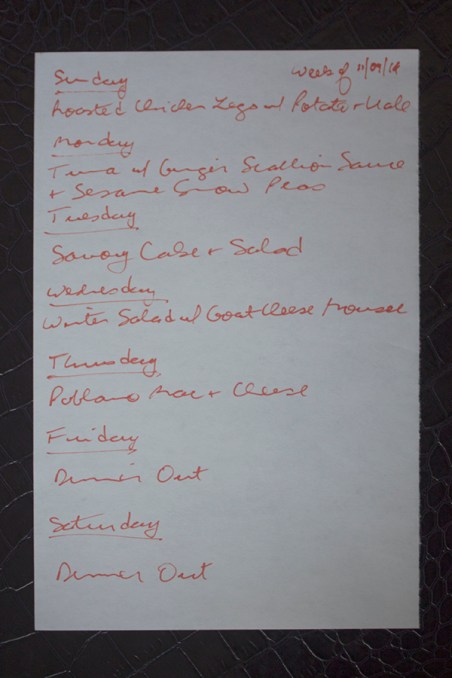 Sunday
week of 11/09/18
Roasted Chicken Legs w/ Potato + Kale
Monday
Tuna w/ Ginger Scallion Sauce
+ Sesame Snow Peas
Tuesday
Savory Cake + Salad
Wednesday
Winter Salad w/ Goat Cheese Mousse
Thursday
Poblano Mac + Cheese
Friday
Dinner Out
Saturday
Dinner Out